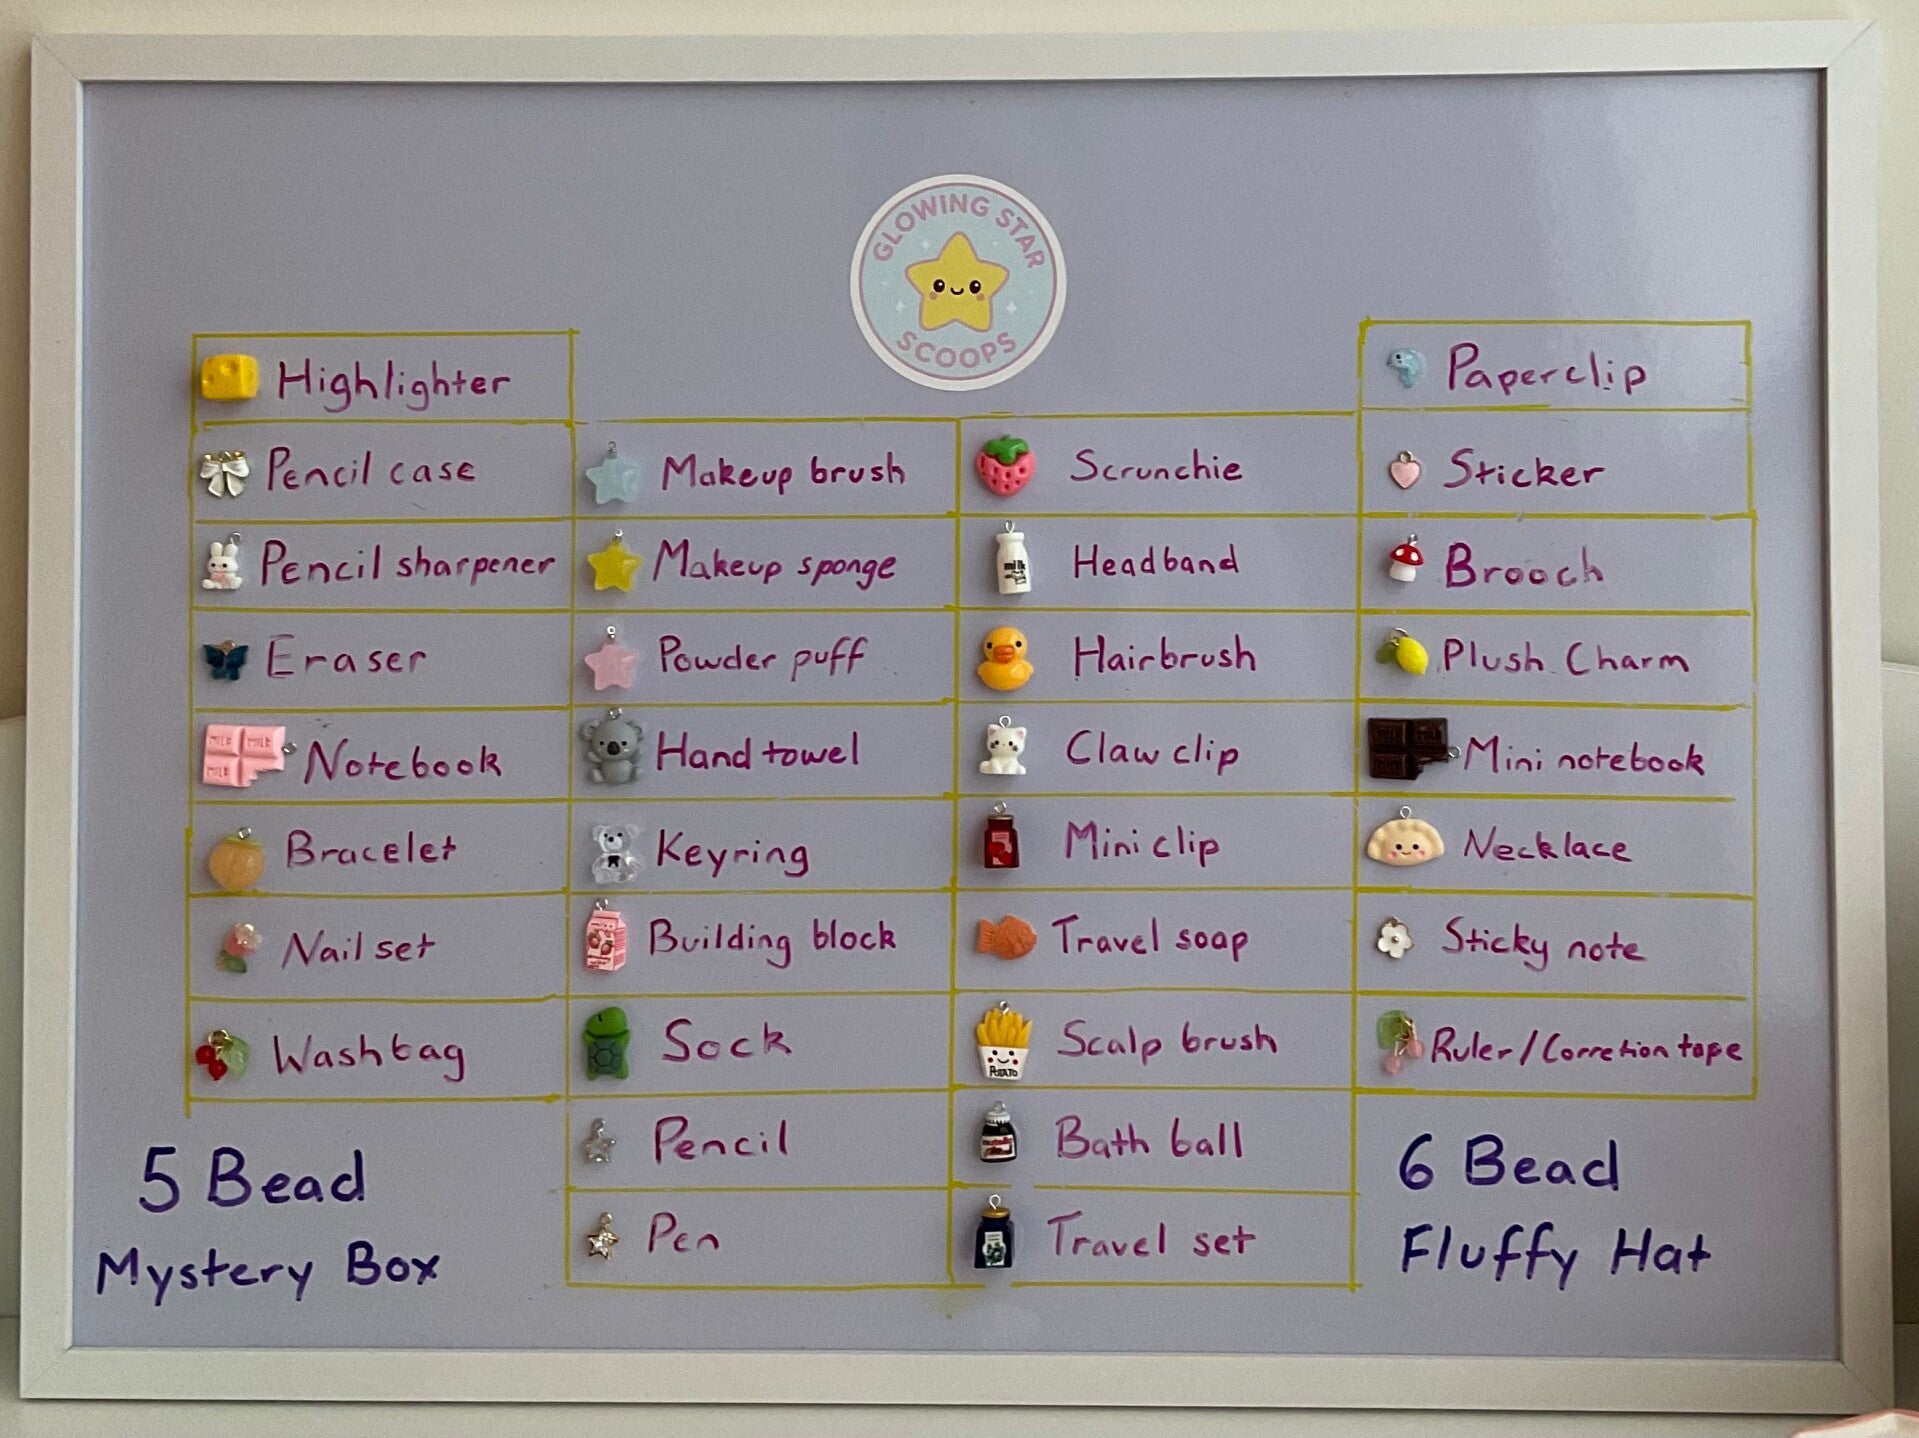 GLOWING STAR
SCOOPS
Highlighter
Pencil case
Pencil sharpener
Eraser
MILK MILK
MILK
Notebook
Bracelet
Nail set
Wash bag
Makeup brush
Makeup sponge
Powder puff
Hand towel
Keyring
Building block
Sock
Pencil
Pen
Scrunchie
milk
Headband
Hairbrush
Claw clip
Mini clip
Travel soap
POTATO
Scalp brush
Bath ball
Travel set
Paperclip
Sticker
Brooch
Plush Charm
Mini notebook
Necklace
Sticky note
Ruler/Corretion tape
5 Bead
Mystery Box
6 Bead
Fluffy Hat